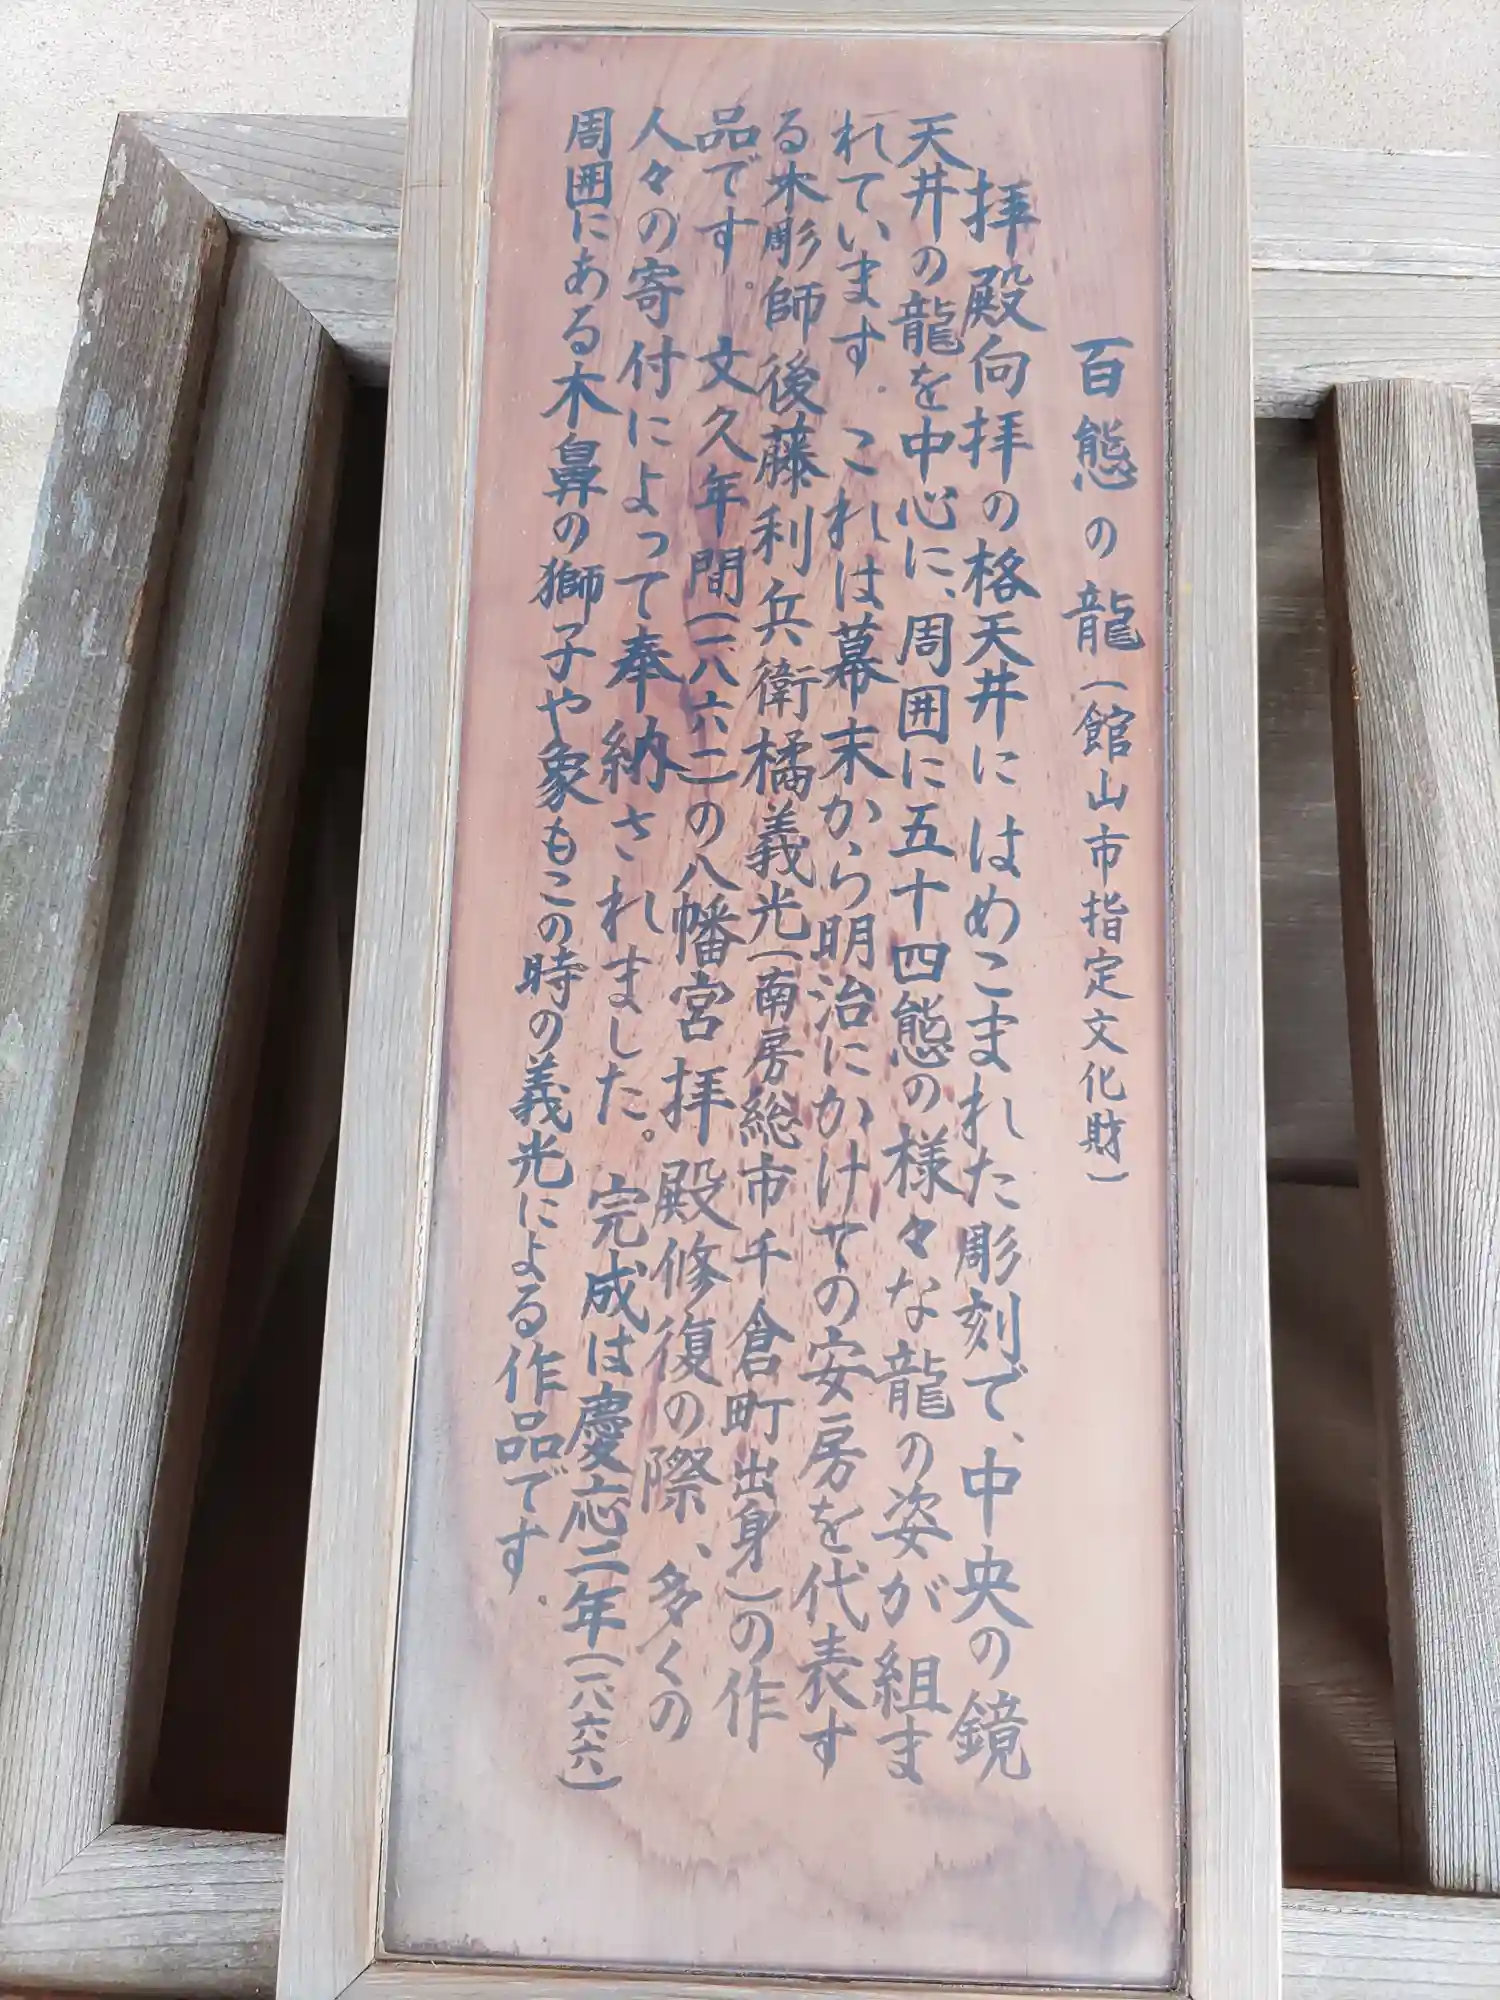 百態の龍（館山市指定文化財）
拝殿向拝の格天井にはめこまれた彫刻で、中央の鏡
天井の龍を中心に、周囲に五十四態の様々な龍の姿が組ま
れています。これは幕末から明治にかけての安房を代表す
る木彫師後藤利兵衛橘義光（南房総市千倉町出身）の作
品です。文久年間（一八六二）の八幡宮拝殿修復の際、多くの
人々の寄付によって奉納されました。完成は慶応二年（一八六六）
周囲にある木鼻の獅子や象もこの時の義光による作品です。